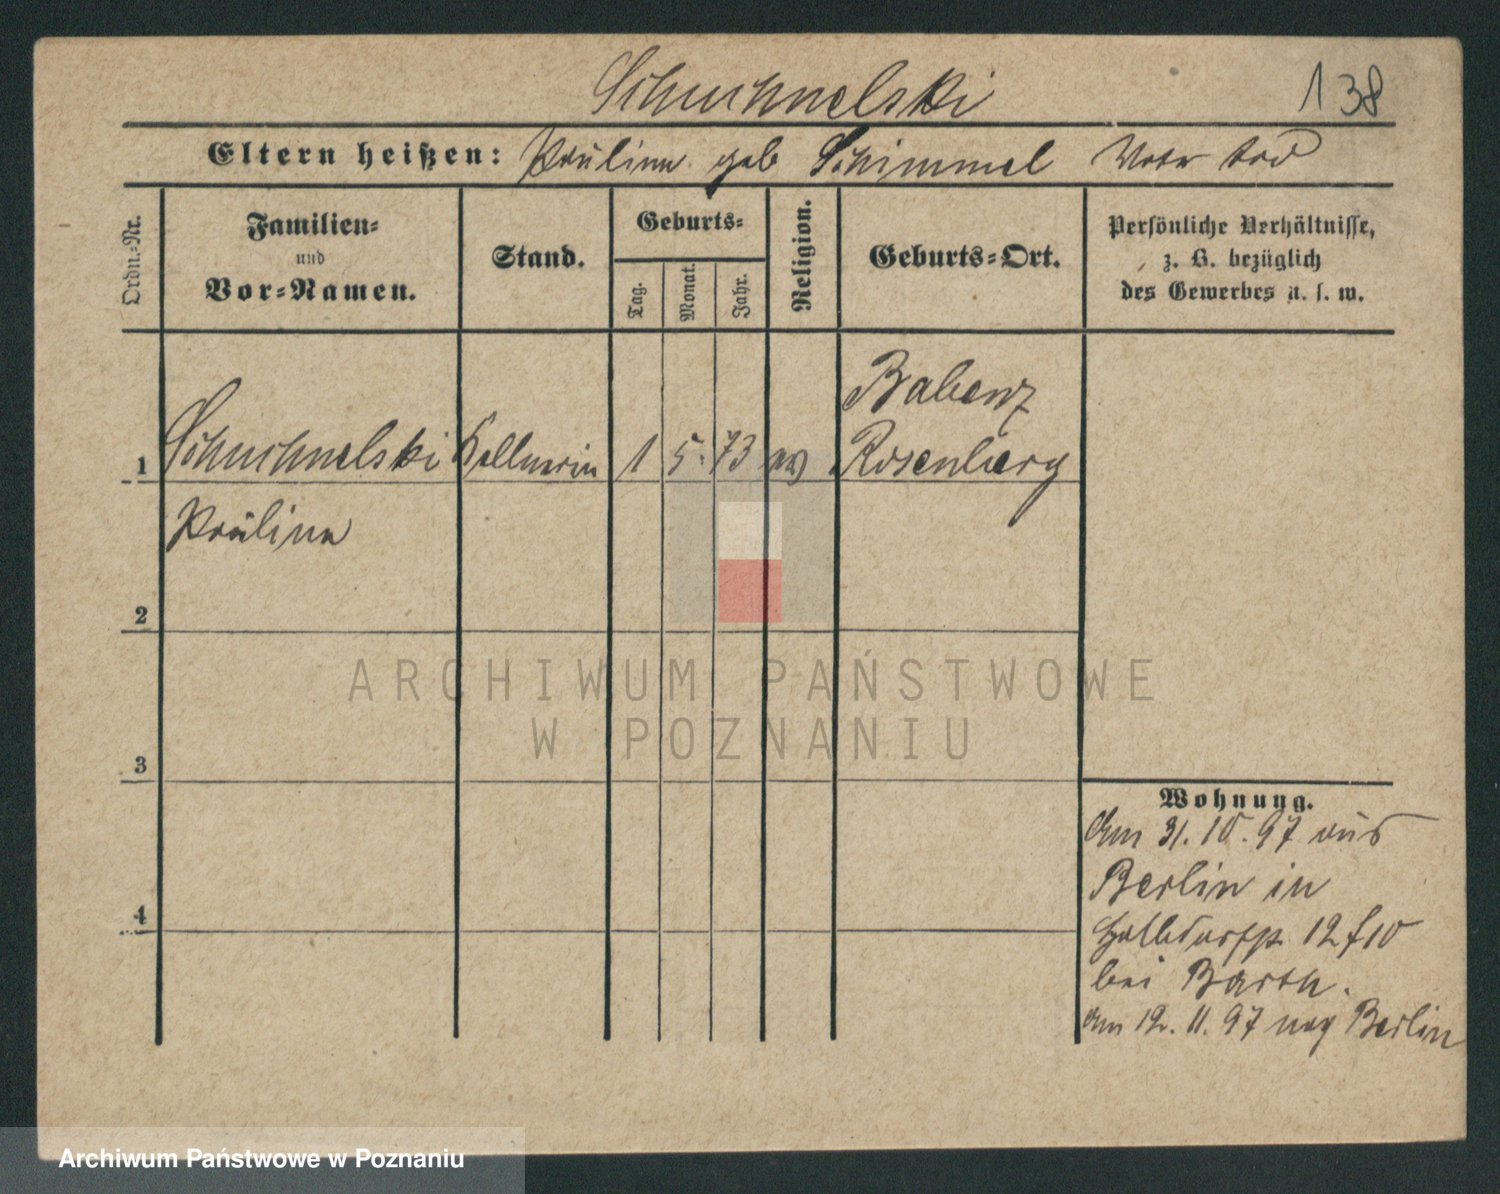 Schuchnelski 138
Eltern heißen: Pauline geb Schimmel Vater tod
Ordn.=Nr.
Familien=
und
Vor=Namen.
Stand.
Geburts=
Tag.
Monat.
Jahr.
Religion.
Geburts=Ort.
Persönliche Verhältnisse,
z. B. bezüglich
des Gewerbes u. s. w.
Babenz
1 Schuchnelski Kellnerin 1 5. 73 ev Rosenberg
Pauline
2
3
4
Wohnung.
Am 31. 10. 97 aus
Berlin in
12
bei Barth.
am 12. 11. 97 nach Berlin
ARCHIWUM PAŃSTWOWE
W POZNANIU
Archiwum Państwowe w Poznaniu